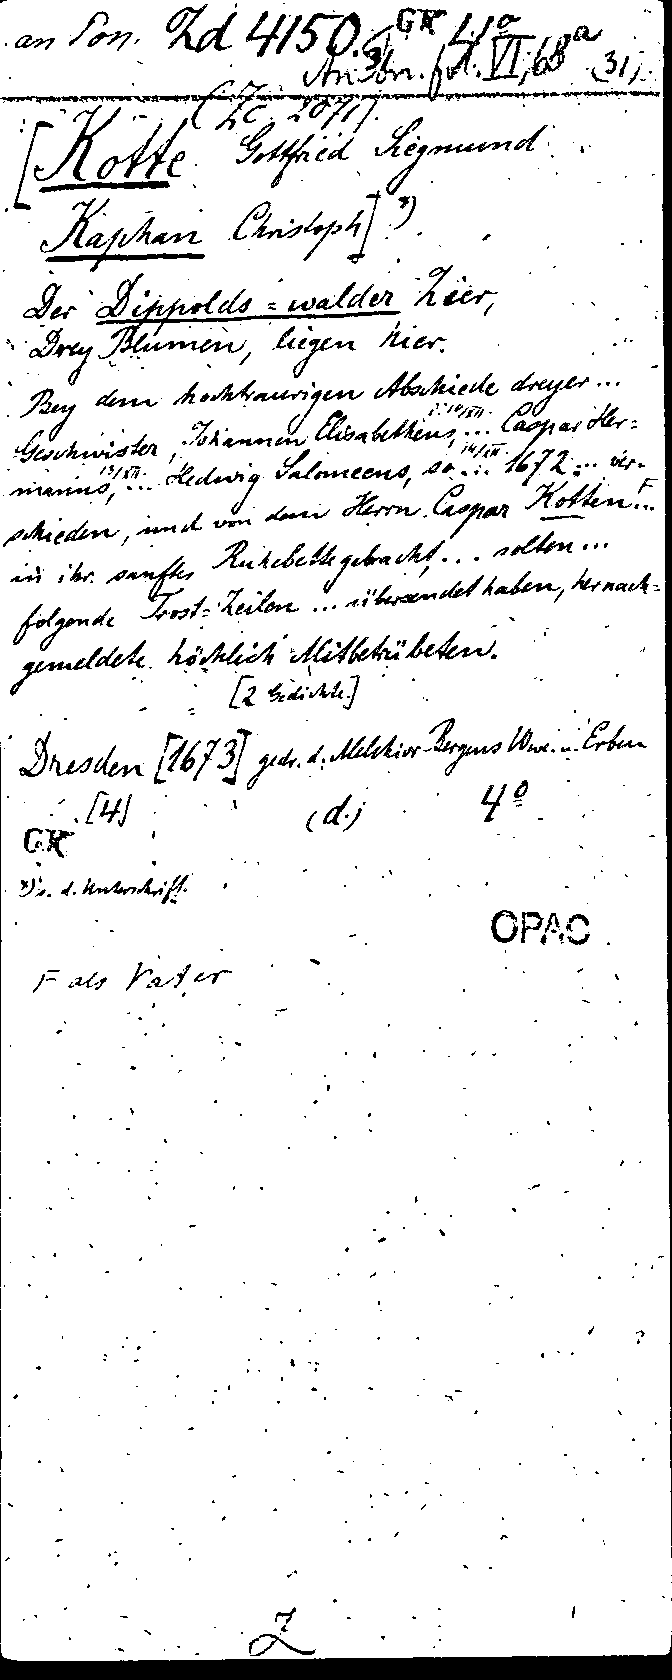 an Pon. Zd 4150. GK 4º
An 3bn. fol. VI, 68ª (31)
(Zc 2071)
[Kotte Gottfried Siegmund
Kaphan Christoph] *)
Der Dippolds=walder Zier,
Drey Blumen, liegen hier.
Bey dem hochtraurigen Abschiede dreyer...
Geschwister, Johannen Elisabethens, ... Caspar Her-
manns, ... Hedwig Salomeens, so ... 1672 ... ver-
schieden, und von dem Herrn Caspar Kotten F...
in ihr sanftes Ruhebette gebracht, ... solten ...
folgende Trost=Zeilen ... übersendet haben, hernach-
gemeldete höchlich Mitbetrübeten.
[2 Gedichte.]
Dresden [1673] gedr. d. Melchior Bergens Wwe. u. Erben
[4] (d.) 4º
GK
*) s. d. Unterschrift.
OPAC
F als Vater